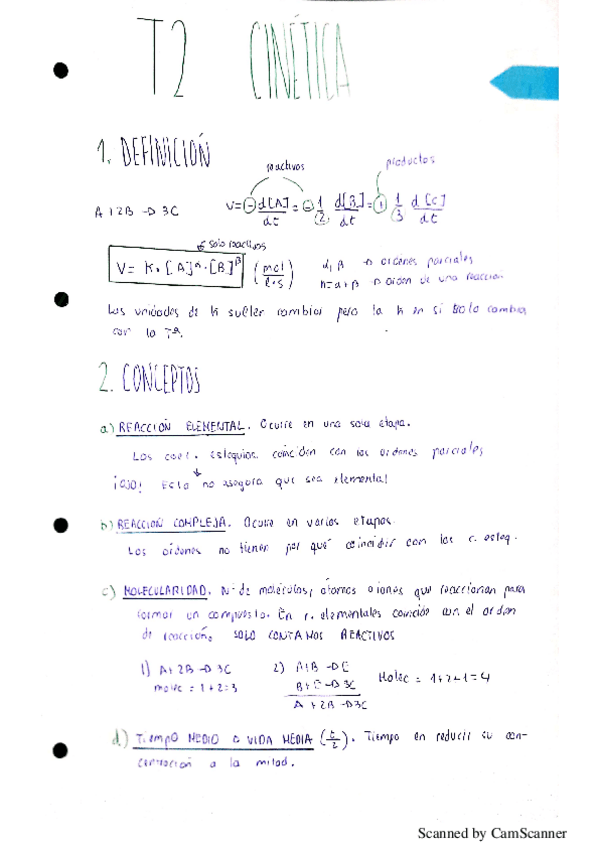 T2 CINÉTICA
1. DEFINICIÓN
reactivos productos
A + 2B → 3C V = - d[A]/dt = - 1/2 d[B]/dt = + 1/3 d[C]/dt
solo reactivos
V = K · [A]^α · [B]^β (mol/l·s) α, β → ordenes parciales
n = α + β → orden de una reacción
Las unidades de K suelen cambiar pero la K en si solo cambia
con la Tª.
2. CONCEPTOS
a) REACCIÓN ELEMENTAL. Ocurre en una sola etapa.
Los coef. estequio. coinciden con los ordenes parciales
¡OJO! Esto no asegura que sea elemental
b) REACCIÓN COMPLEJA. Ocurre en varias etapas.
Los órdenes no tienen por qué coincidir con los c. esteq.
c) MOLECULARIDAD. Nº de moléculas, átomos o iones que reaccionan para
formar un compuesto. En r. elementales coincide con el orden
de reacción. SOLO CONTAMOS REACTIVOS
1) A + 2B → 3C 2) A + B → E
molec = 1+2=3 B + E → 3C Molec = 1+2+1=4
A + 2B → 3C
d) TIEMPO MEDIO o VIDA MEDIA (t/2). Tiempo en reducir su con-
centración a la mitad.
Scanned by CamScanner